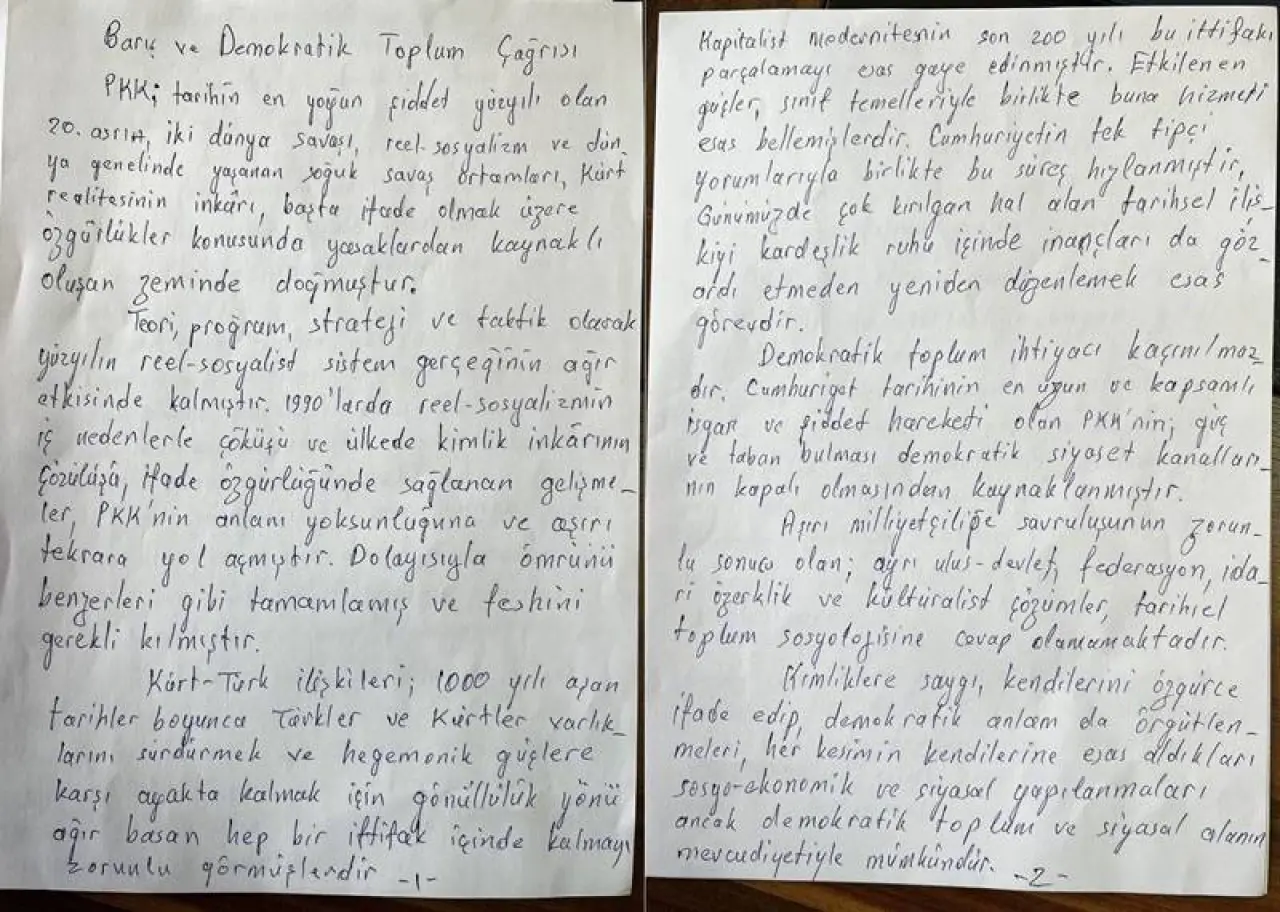 Barış ve Demokratik Toplum Çağrısı
PKK; tarihin en yoğun şiddet yüzyılı olan
20. asrın, iki dünya savaşı, reel-sosyalizm ve dün_
ya genelinde yaşanan soğuk savaş ortamları, Kürt
realitesinin inkârı, başta ifade olmak üzere
özgürlükler konusunda yasaklardan kaynaklı
oluşan zeminde doğmuştur.
Teori, proğram, strateji ve taktik olarak
yüzyılın reel-sosyalist sistem gerçeğinin ağır
etkisinde kalmıştır. 1990'larda reel-sosyalizmin
iç nedenlerle çöküşü ve ülkede kimlik inkârının
çözülüşü, ifade özgürlüğünde sağlanan gelişme_
ler, PKK'nin anlam yoksunluğuna ve aşırı
tekrara yol açmıştır. Dolayısıyla ömrünü
benzerleri gibi tamamlamış ve feshini
gerekli kılmıştır.
Kürt-Türk ilişkileri; 1000 yılı aşan
tarihler boyunca Türkler ve Kürtler varlık_
larını sürdürmek ve hegemonik güçlere
karşı ayakta kalmak için gönüllülük yönü
ağır basan hep bir ittifak içinde kalmayı
zorunlu görmüşlerdir -1-
Kapitalist modernitenin son 200 yılı bu ittifakı
parçalamayı esas gaye edinmiştir. Etkilenen
güçler, sınıf temelleriyle birlikte buna hizmeti
esas bellemişlerdir. Cumhuriyetin tek tipçi
yorumlarıyla birlikte bu süreç hızlanmıştır,
Günümüzde çok kırılgan hal alan tarihsel iliş_
kiyi kardeşlik ruhu içinde inançları da göz_
ardı etmeden yeniden düzenlemek esas
görevdir.
Demokratik toplum ihtiyacı kaçınılmaz
dır. Cumhuriyet tarihinin en uzun ve kapsamlı
isyan ve şiddet hareketi olan PKK'nin; güç
ve taban bulması demokratik siyaset kanalları_
nın kapalı olmasından kaynaklanmıştır.
Aşırı milliyetçiliğe savruluşunun zorun_
lu sonucu olan; ayrı ulus-devlet, federasyon, ida_
ri özerklik ve kültüralist çözümler, tarihsel
toplum sosyolojisine cevap olamamaktadır.
Kimliklere saygı, kendilerini özgürce
ifade edip, demokratik anlam da örgütlen_
meleri, her kesimin kendilerine esas aldıkları
sosyo-ekonomik ve siyasal yapılanmaları
ancak demokratik toplum ve siyasal alanın
mevcudiyetiyle mümkündür. -2-